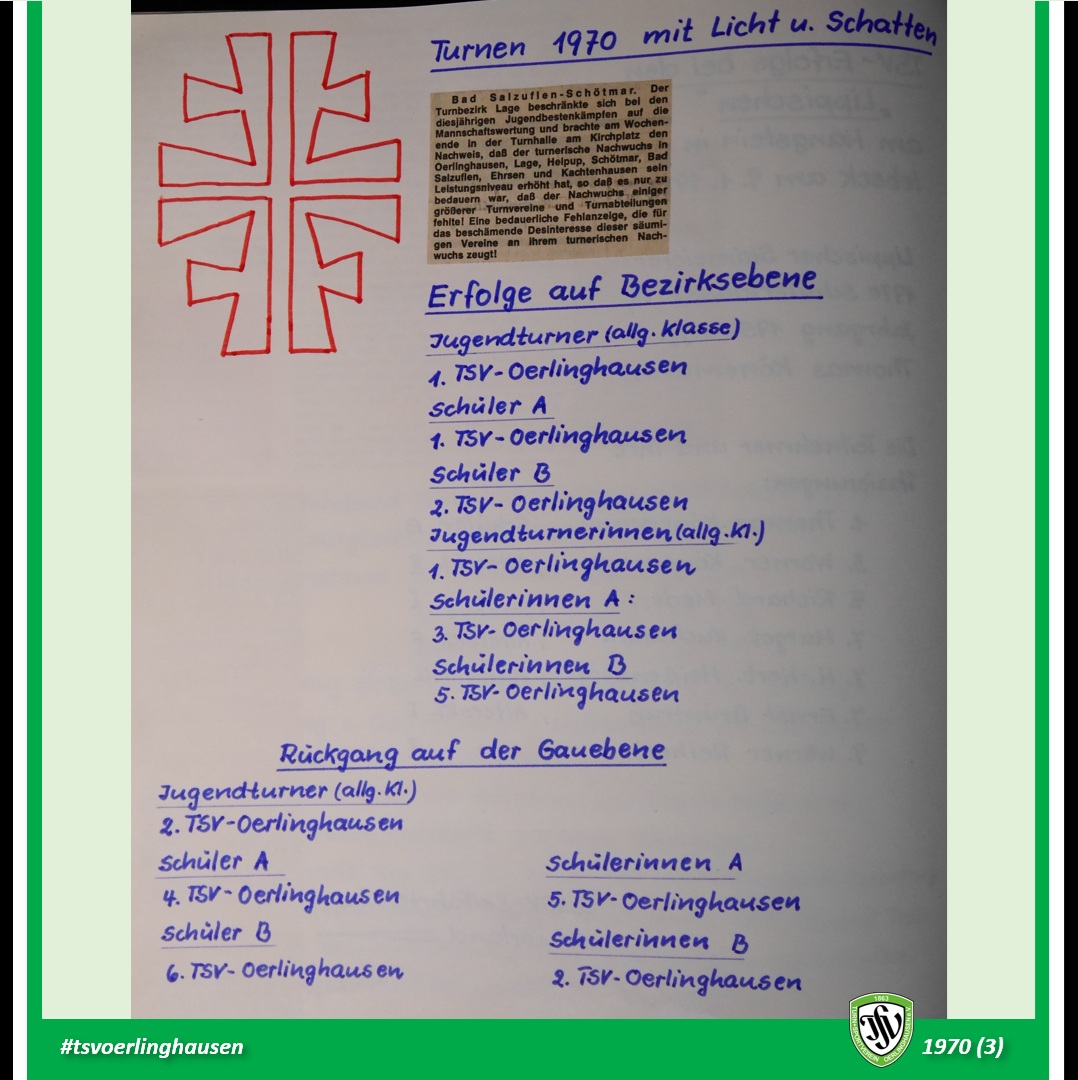 Turnen 1970 mit Licht u. Schatten
Bad Salzuflen-Schötmar. Der
Turnbezirk Lage beschränkte sich bei den
diesjährigen Jugendbestenkämpfen auf die
Mannschaftswertung und brachte am Wochen-
ende in der Turnhalle am Kirchplatz den
Nachweis, daß der turnerische Nachwuchs in
Oerlinghausen, Lage, Helpup, Schötmar, Bad
Salzuflen, Ehrsen und Kachtenhausen sein
Leistungsniveau erhöht hat, so daß es nur zu
bedauern war, daß der Nachwuchs einiger
größerer Turnvereine und Turnabteilungen
fehlte! Eine bedauerliche Fehlanzeige, die für
das beschämende Desinteresse dieser säumi-
gen Vereine an ihrem turnerischen Nach-
wuchs zeugt!
Erfolge auf Bezirksebene
Jugendturner (allg. Klasse)
1. TSV-Oerlinghausen
Schüler A
1. TSV-Oerlinghausen
Schüler B
2. TSV-Oerlinghausen
Jugendturnerinnen (allg. Kl.)
1. TSV-Oerlinghausen
Schülerinnen A:
3. TSV-Oerlinghausen
Schülerinnen B
5. TSV-Oerlinghausen
Rückgang auf der Gauebene
Jugendturner (allg. Kl.)
2. TSV-Oerlinghausen
Schüler A
4. TSV-Oerlinghausen
Schüler B
6. TSV-Oerlinghausen
Schülerinnen A
5. TSV-Oerlinghausen
Schülerinnen B
2. TSV-Oerlinghausen
#tsvoerlinghausen
1863
TSV
OERLINGHAUSEN
1970 (3)